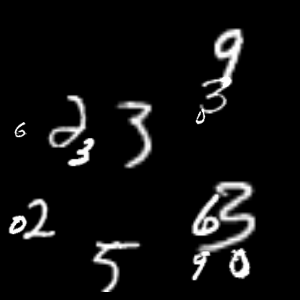 9
3
0
6 2 3 3
0 2 6 3
5 9 0